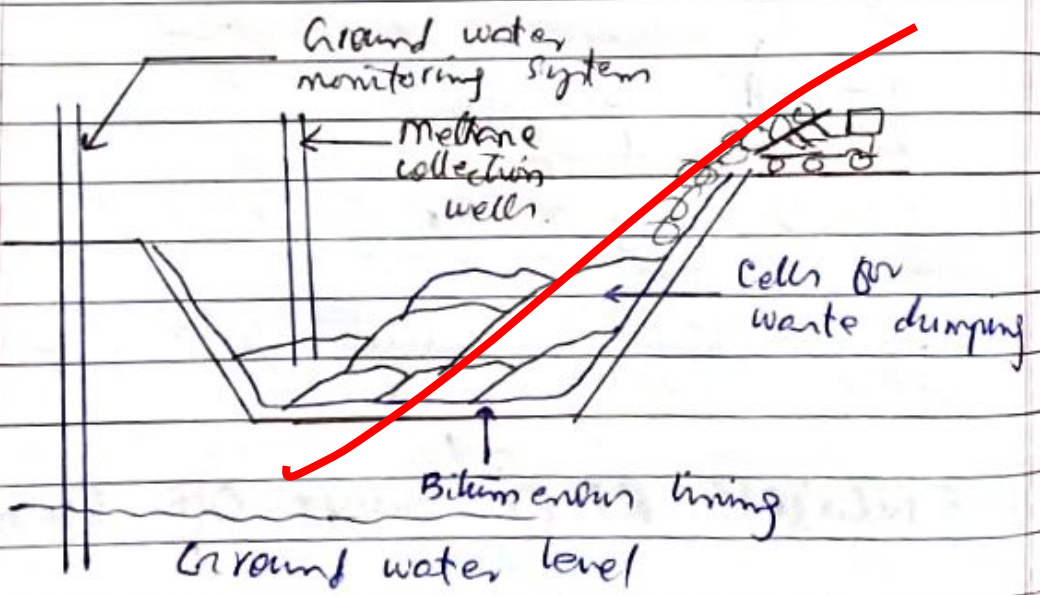 Ground water
monitoring system
Methane
collection
wells.
Cells for
waste dumping
Bitumenous lining
Ground water level